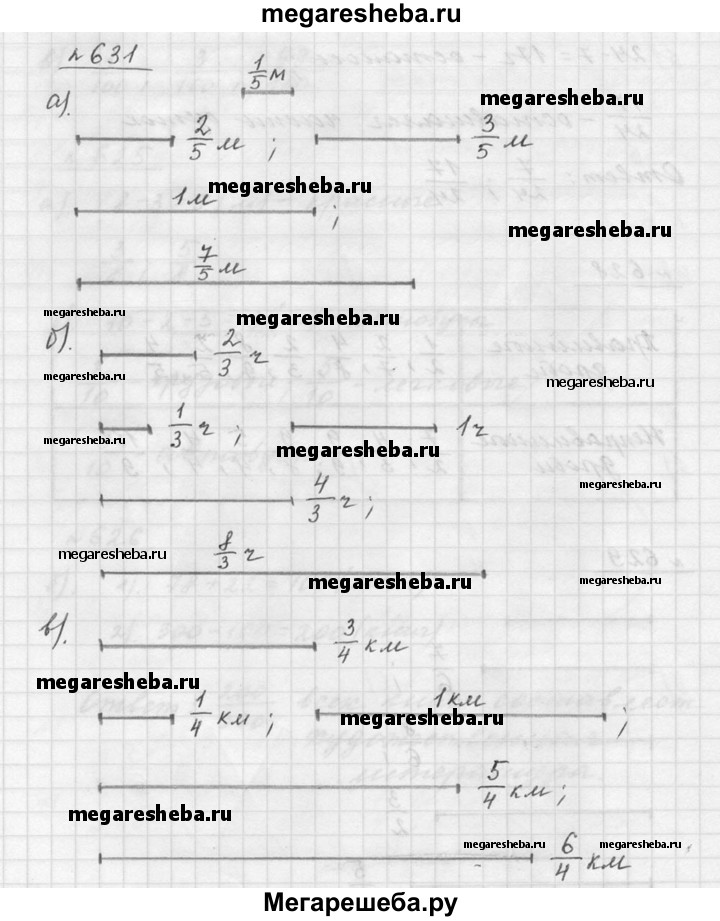 megaresheba.ru
№ 631
1/5 м
а).
megaresheba.ru
2/5 м ; 3/5 м
megaresheba.ru
1 м ;
megaresheba.ru
7/5 м
megaresheba.ru
megaresheba.ru
б). 2/3 ч
megaresheba.ru
megaresheba.ru
1/3 ч ; 1 ч
megaresheba.ru
megaresheba.ru
4/3 ч ;
megaresheba.ru
8/3 ч
megaresheba.ru
megaresheba.ru
megaresheba.ru
в). 3/4 км
megaresheba.ru
megaresheba.ru
1/4 км ; 1 км ;
megaresheba.ru
5/4 км ;
megaresheba.ru
megaresheba.ru
megaresheba.ru
6/4 км
Мегарешеба.ру